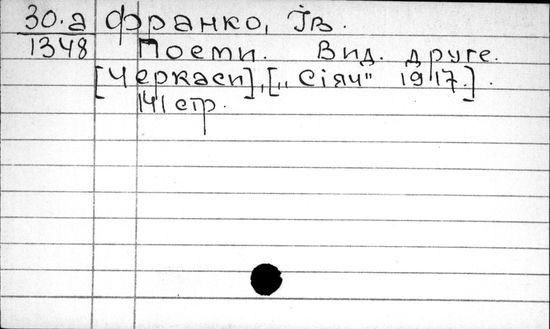 30.а Франко, Ів.
1348 Поеми. Вид. друге.
[Черкаси], [„Сіяч" 1917.].
141 стр.